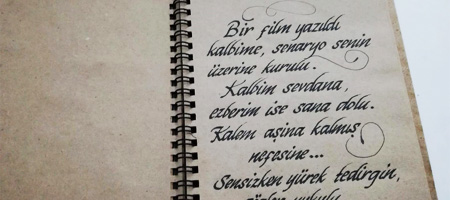 Bir film yazıldı
kalbime, senaryo senin
üzerine kurulu.
Kalbim sevdana,
ezberim ise sana dolu.
Kalem aşina kalmış
nefesine...
Sensizken yürek tedirgin,